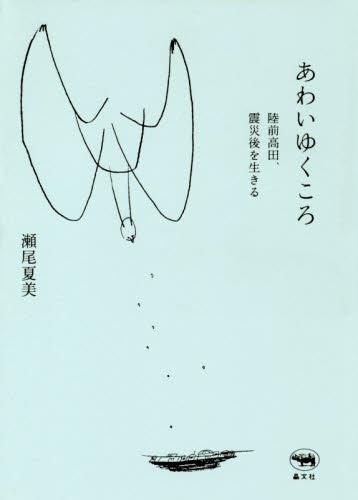 あわいゆくころ
陸前高田、
震災後を生きる
瀬尾夏美
晶文社